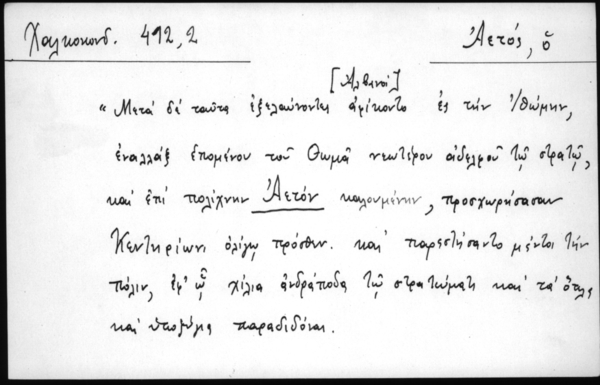 Χαλκοκονδ. 492,2
Ἀετός, ὁ
[Ἀλβανοὶ]
"Μετὰ δὲ ταῦτα ἐξελαύνοντες ἀφίκοντο ἐς τὴν Ἰθώμην,
ἐναλλὰξ ἑπομένου τοῦ Θωμᾶ νεωτέρου ἀδελφοῦ τῷ στρατῷ,
καὶ ἐπὶ πολίχνην Ἀετὸν καλουμένην, προσχωρήσασαν
Κεντηρίωνι ὀλίγῳ πρόσθεν. καὶ παρεστήσαντο μέντοι τὴν
πόλιν, ἐφ' ᾧ χίλια ἀνδράποδα τῷ στρατεύματι καὶ τὰ ὅπλα
καὶ ὑποζύγια παραδιδόναι.